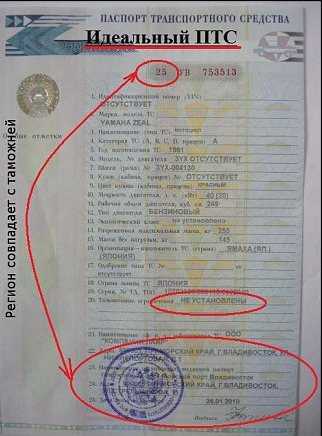 ПАСПОРТ ТРАНСПОРТНОГО СРЕДСТВА
Идеальный ПТС
25 УВ 753513
1. Идентификационный номер (VIN)
ОТСУТСТВУЕТ
2. Марка, модель ТС
YAMAHA ZEAL
3. Наименование (тип ТС) мотоцикл
4. Категория ТС (А, В, С, D, прицеп) А
5. Год изготовления ТС 1991
6. Модель, № двигателя 3YX ОТСУТСТВУЕТ
7. Шасси (рама) № 3YX-004130
8. Кузов (кабина, прицеп) № ОТСУТСТВУЕТ
9. Цвет кузова (кабины, прицепа) КРАСНЫЙ
10. Мощность двигателя, л.с. (кВт) 40
11. Рабочий объем двигателя, куб. см 249
12. Тип двигателя БЕНЗИНОВЫЙ
13. Экологический класс не установлено
14. Разрешенная максимальная масса, кг 255
15. Масса без нагрузки, кг 145
16. Организация-изготовитель ТС (страна) ЯМАХА (ЯП.)
(ЯПОНИЯ)
17. Одобрение типа ТС №
18. Страна вывоза ТС ЯПОНИЯ
19. Серия, № ТД, ТПО
20. Таможенные ограничения НЕ УСТАНОВЛЕНЫ
ООО
КРАЙ, Г.ВЛАДИВОСТОК,
порт Владивосток
КРАЙ, Г.ВЛАДИВОСТОК,
28.01.2010
Подпись
Регион совпадает с таможней